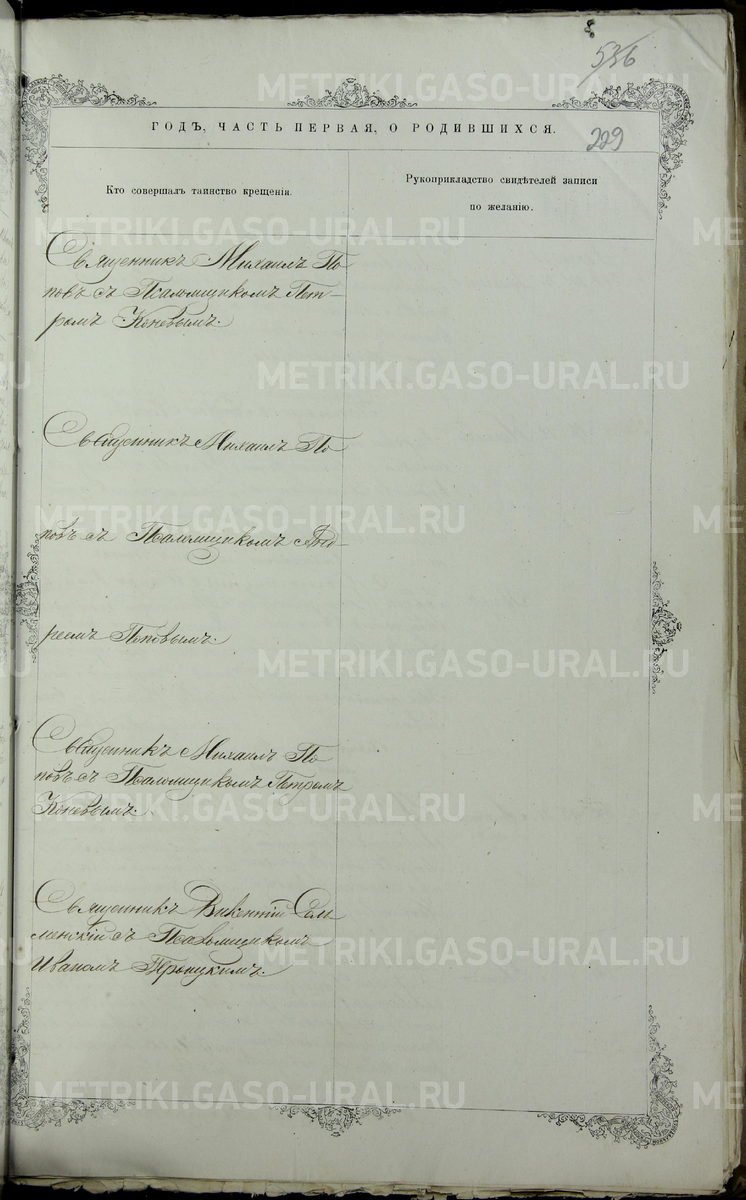 536
ГОДЪ, ЧАСТЬ ПЕРВАЯ, О РОДИВШИХСЯ.
229
Кто совершалъ таинство крещенія.
Рукоприкладство свидѣтелей записи
по желанію.
Священникъ Михаилъ По-
повъ съ Псаломщикомъ Пет-
ромъ Коневымъ.
Священникъ Михаилъ По-
повъ съ Псаломщикомъ Анд-
реемъ Поповымъ.
Священникъ Михаилъ По-
повъ съ Псаломщикомъ Петромъ
Коневымъ.
Священникъ Викентій
съ Псаломщикомъ
Иваномъ Троицкимъ.
METRIKI.GASO-URAL.RU